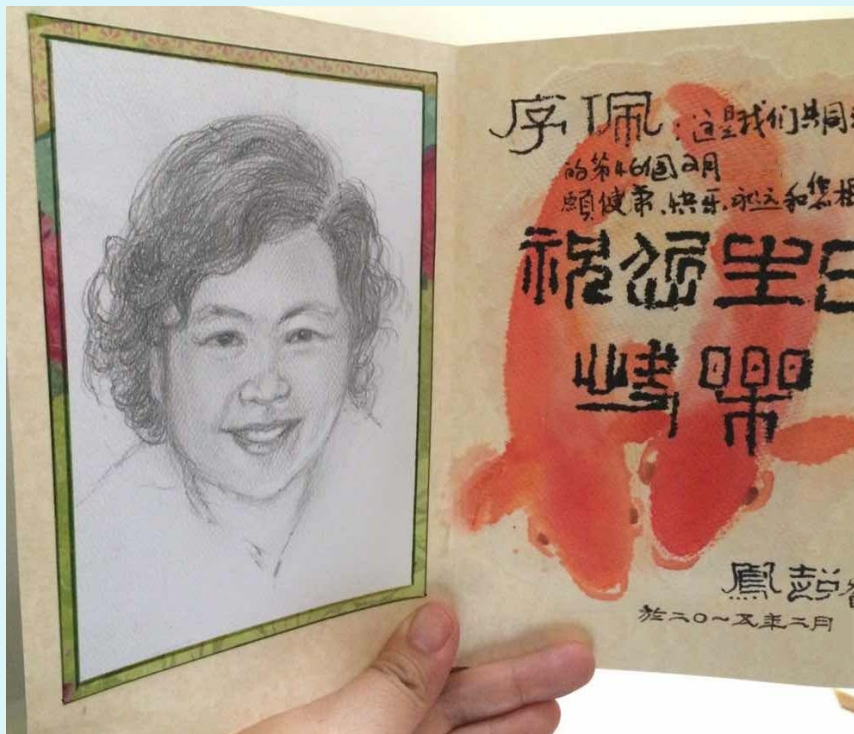 序佩：这是我们共同
的第46個2月
願健康、快乐、永远和您相
祝您生日
快樂
鳳
於二〇一五年二月